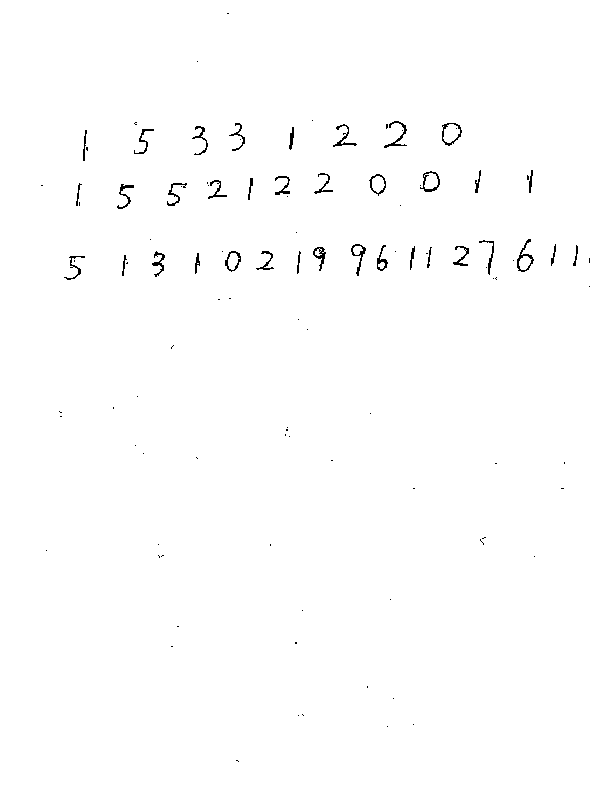 1 5 3 3 1 2 2 0
1 5 5 2 1 2 2 0 0 1 1
5 1 3 1 0 2 1 9 9 6 1 1 2 7 6 1 1